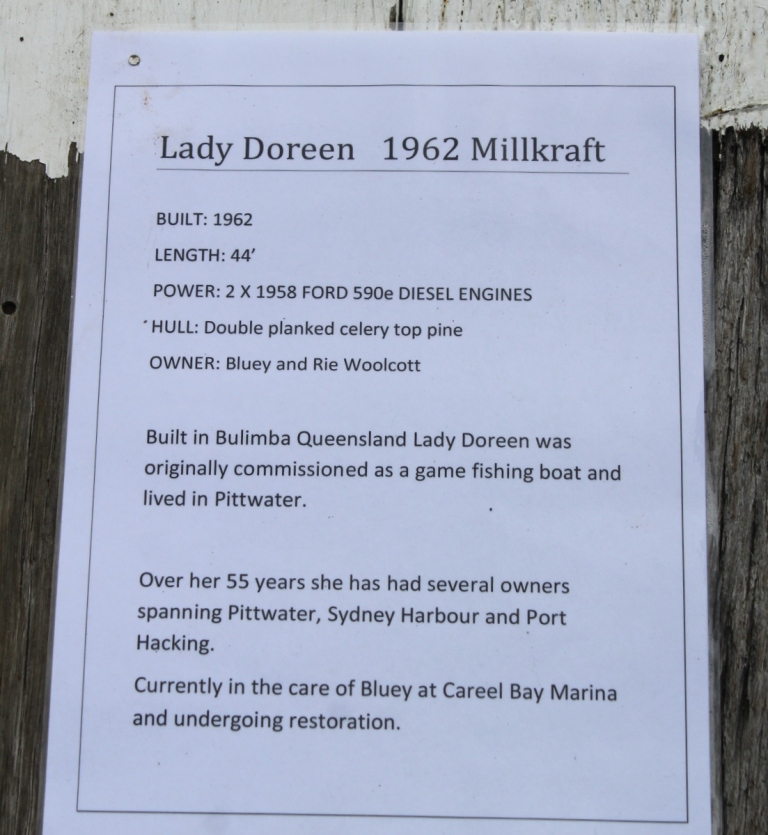 Lady Doreen 1962 Millkraft
BUILT: 1962
LENGTH: 44'
POWER: 2 X 1958 FORD 590e DIESEL ENGINES
HULL: Double planked celery top pine
OWNER: Bluey and Rie Woolcott
Built in Bulimba Queensland Lady Doreen was
originally commissioned as a game fishing boat and
lived in Pittwater.
Over her 55 years she has had several owners
spanning Pittwater, Sydney Harbour and Port
Hacking.
Currently in the care of Bluey at Careel Bay Marina
and undergoing restoration.